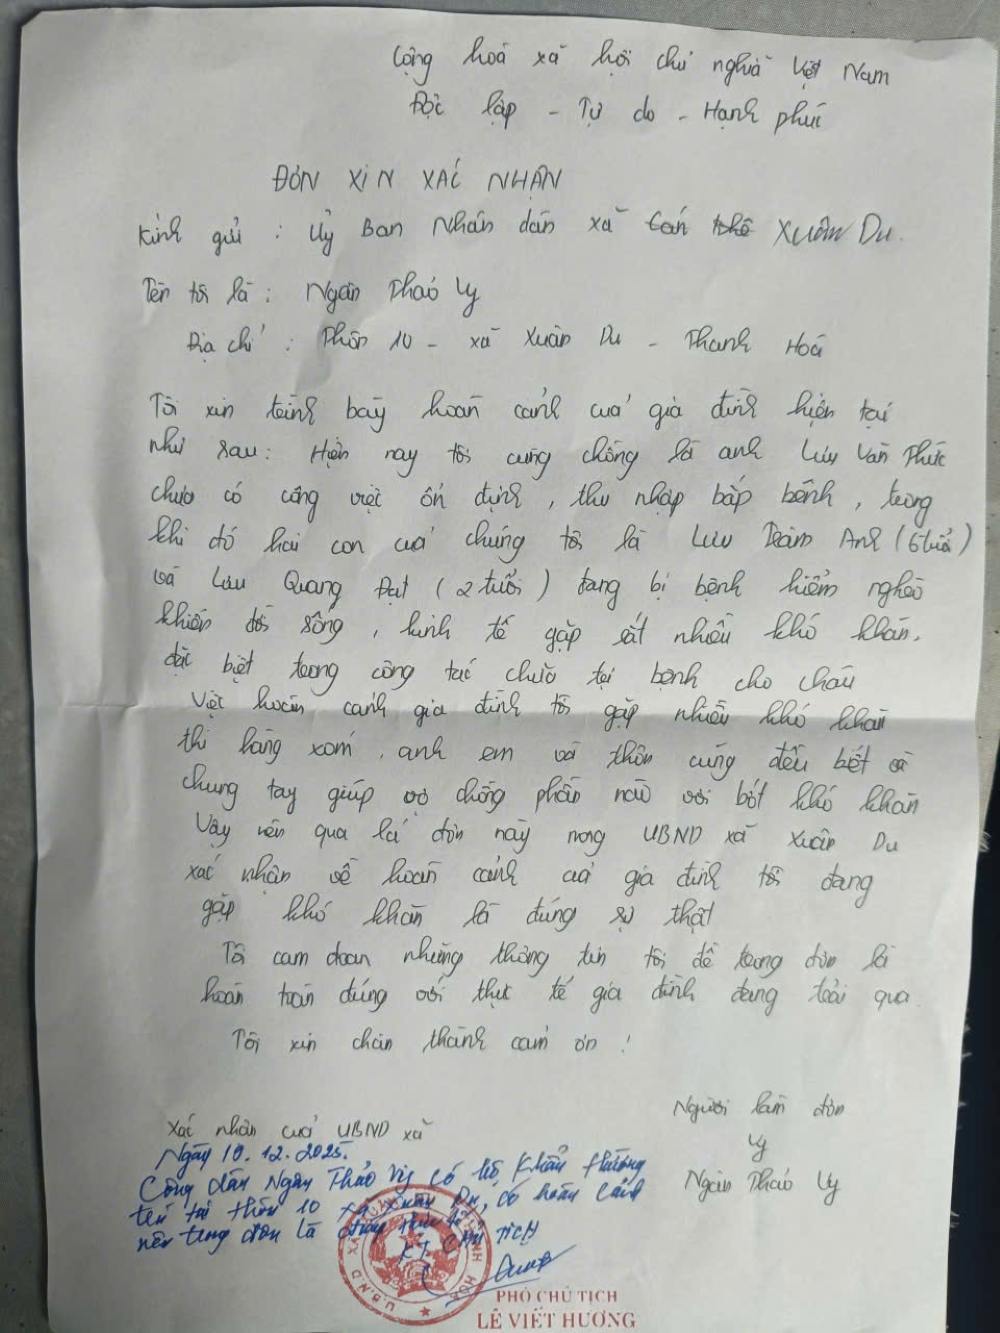 Cộng hoà xã hội chủ nghĩa Việt Nam
Độc lập - Tự do - Hạnh phúc
ĐƠN XIN XÁC NHẬN
Kính gửi : Uỷ Ban Nhân dân xã Xuân Du.
Tên tôi là : Ngân Thảo Ly
Địa chỉ : Thôn 10 - xã Xuân Du - Thanh Hoá
Tôi xin trình bày hoàn cảnh của gia đình hiện tại
như sau : Hiện nay tôi cùng chồng là anh Lưu Văn Thức
chưa có công việc ổn định, thu nhập bấp bênh, trong
khi đó hai con của chúng tôi là Lưu Trâm Anh (6 tuổi)
và Lưu Quang Đạt (2 tuổi) đang bị bệnh hiểm nghèo
khiến đời sống, kinh tế gặp rất nhiều khó khăn.
đặc biệt trong công tác chữa trị bệnh cho cháu
Việc hoàn cảnh gia đình tôi gặp nhiều khó khăn
thì hàng xóm, anh em và thôn cũng đều biết và
chung tay giúp vợ chồng phần nào vơi bớt khó khăn
Vậy nên qua lá đơn này mong UBND xã Xuân Du
xác nhận về hoàn cảnh của gia đình tôi đang
gặp khó khăn là đúng sự thật
Tôi cam đoan những thông tin tôi đề trong đơn là
hoàn toàn đúng với thực tế gia đình đang trải qua.
Tôi xin chân thành cảm ơn !
Người làm đơn
Ly
Ngân Thảo Ly
Xác nhận của UBND xã
Ngày 10.12.2025.
Công dân Ngân Thảo Ly có hộ khẩu thường
trú tại thôn 10 xã Xuân Du, có hoàn cảnh
nêu trong đơn là đúng
KT. CHỦ TỊCH
PHÓ CHỦ TỊCH
LÊ VIẾT HƯƠNG